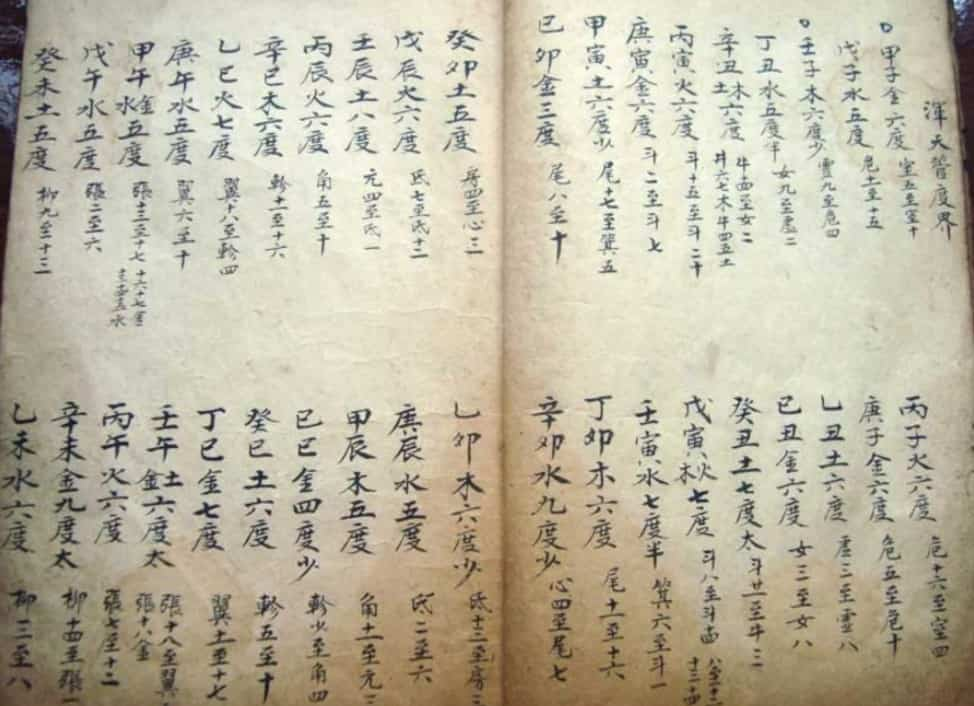 渾天管度界
甲子金六度 室五至室十
丙子火六度 危十六至室四
戊子水五度 危十一至十五
庚子金六度 危五至危十
壬子木六度少 虛九至危四
乙丑土六度 虛三至虛八
丁丑水五度半 女九至虛二
己丑金六度 女三至女八
辛丑木土六度 牛四至女二 斗六七木牛四五土
癸丑土七度太 斗廿一至牛三
丙寅火六度 斗十五至斗二十
戊寅火水七度 斗八至斗十四
庚寅金六度 斗二至斗七
壬寅水七度半 箕六至斗一
甲寅土六度少 尾十七至箕五
丁卯木六度 尾十一至十六
己卯金三度 尾八至十
辛卯水九度少 心四至尾七
癸卯土五度 房四至心三
乙卯木六度少 氐十三至房三
戊辰火六度 氐七至氐十二
庚辰水五度 氐二至六
壬辰土八度 亢四至氐一
甲辰木五度 角十一至亢三
丙辰火六度 角五至十
己巳金四度少 軫少至角四
辛巳木六度 軫十一至十六
癸巳土六度 軫五至十
乙巳火七度 翼十八至軫四
丁巳金七度 翼十一至十七
庚午水五度 翼六至十
壬午土金六度太 張十八至翼 張十八金
甲午金水五度 張十三至十七 十六十七金
丙午火六度 張七至十二
戊午水五度 張二至六
辛未金九度太 柳十四至張一
癸未土五度 柳九至十三
乙未水六度 柳三至八